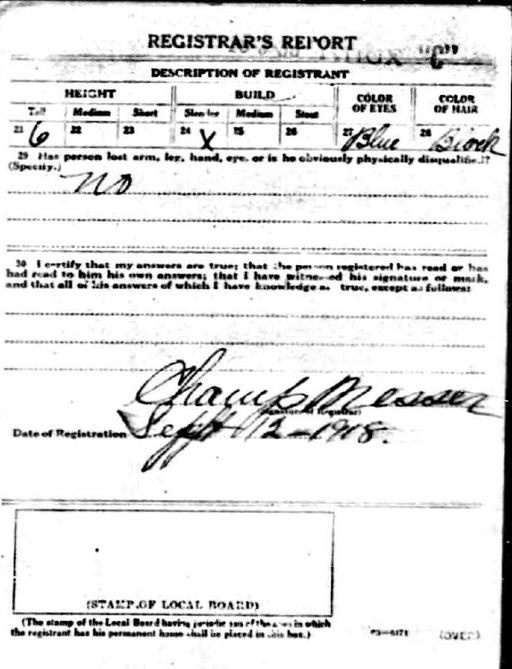 REGISTRAR'S REPORT
"C"
DESCRIPTION OF REGISTRANT
HEIGHT BUILD COLOR OF EYES COLOR OF HAIR
Tall Medium Short Slender Medium Stout
21 6 22 23 24 X 25 26 27 Blue 28 Black
29 Has person lost arm, leg, hand, eye, or is he obviously physically disqualified?
(Specify.) no
30 I certify that my answers are true; that the person registered has read or has
had read to him his own answers; that I have witnessed his signature or mark,
and that all of his answers of which I have knowledge are true, except as follows:
Champ Messer
(Signature of Registrar)
Date of Registration Sept 12-1918.
(STAMP OF LOCAL BOARD)
(The stamp of the Local Board having jurisdiction of the area in which
the registrant has his permanent home shall be placed in this box.)
03—6171 (OVER)